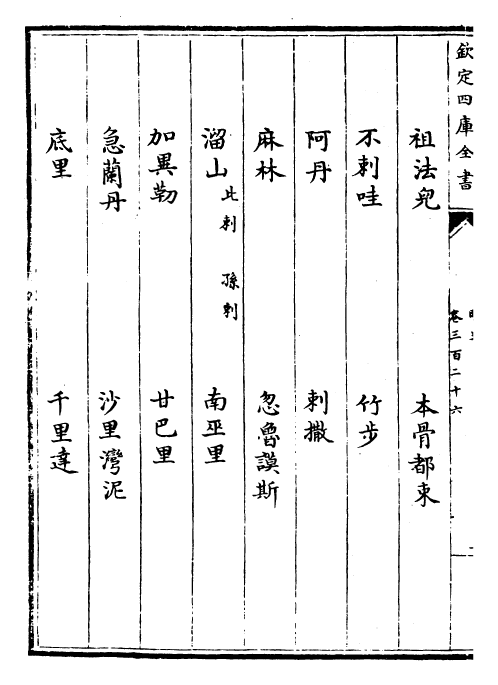 欽定四庫全書
卷三百二十六
祖法兒 木骨都束
不剌哇 竹步
阿丹 剌撒
麻林 忽魯謨斯
溜山 比剌 孫剌 南巫里
加異勒 甘巴里
急蘭丹 沙里灣泥
底里 千里達